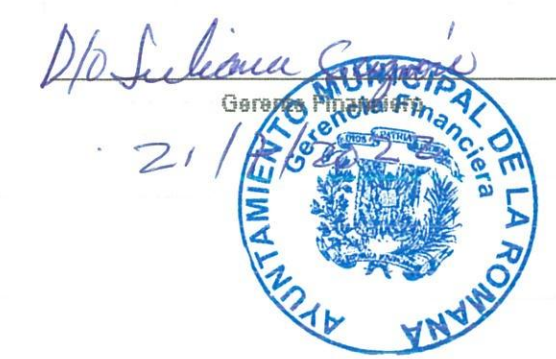 D/o Juliana
Gerente Financiero
21/
AYUNTAMIENTO MUNICIPAL DE LA ROMANA
Gerencia Financiera
DIOS PATRIA